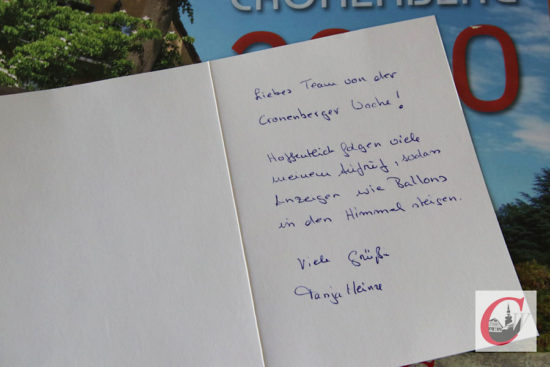 CRONENBERG
Liebes Team von der
Cronenberger Woche!
Hoffentlich folgen viele
meinem Aufruf, sodass
Anzeigen wie Ballons
in den Himmel steigen.
Viele Grüße
Tanja Heinze
C